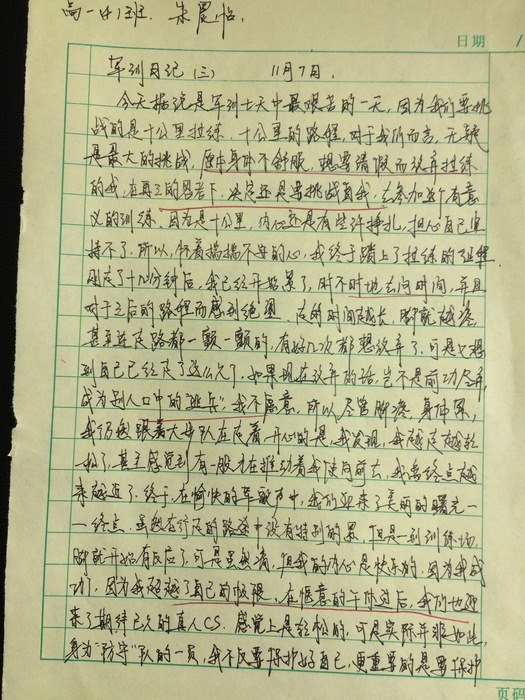 高一(4)班. 朱晨怡.
日期
军训日记（三） 11月7日.
今天据说是军训七天中最艰苦的一天，因为我们要挑
战的是十公里拉练，十公里的路程，对于我们而言，无疑
是最大的挑战，原本身体不舒服，想要请假而放弃拉练
的我，在再三的思考下，决定还是要挑战自我，去参加这个有意
义的训练。因为是十公里，内心还是有些许挣扎，担心自己坚
持不了，所以，怀着揣揣不安的心，我终于踏上了拉练的征程
刚走了十几分钟后，我已经开始累了，时不时地去问时间，并且
对于之后的路程而感到绝望。走的时间越长，脚就越疼，
甚至连走路都一颤一颤的，有好几次都想放弃了，可是又想
到自己已经走了这么久了，如果现在放弃的话，岂不是前功尽弃
成为别人口中的“逃兵”，我不愿意，所以，尽管脚疼，身体累，
我仍然跟着大部队在走着，开心的是，我发现，我越走越轻
松了，甚至感觉到有一股力在推动着我使向前大，我离终点越
来越近了，终于，在愉快的军歌声中，我们迎来了美丽的曙光—
—终点。虽然在行走的路途中没有特别的累，但是一到训练场，
脚就开始有反应了，可是虽然疼，但我的内心是快乐的，因为我成
功，因为我超越了自己的极限。在惬意的午休过后，我们也迎
来了期待已久的真人CS，感觉上是轻松的，可是实际并非如此，
身为“防守”队的一员，我不仅要保护好自己，更重要的是要保护
页码